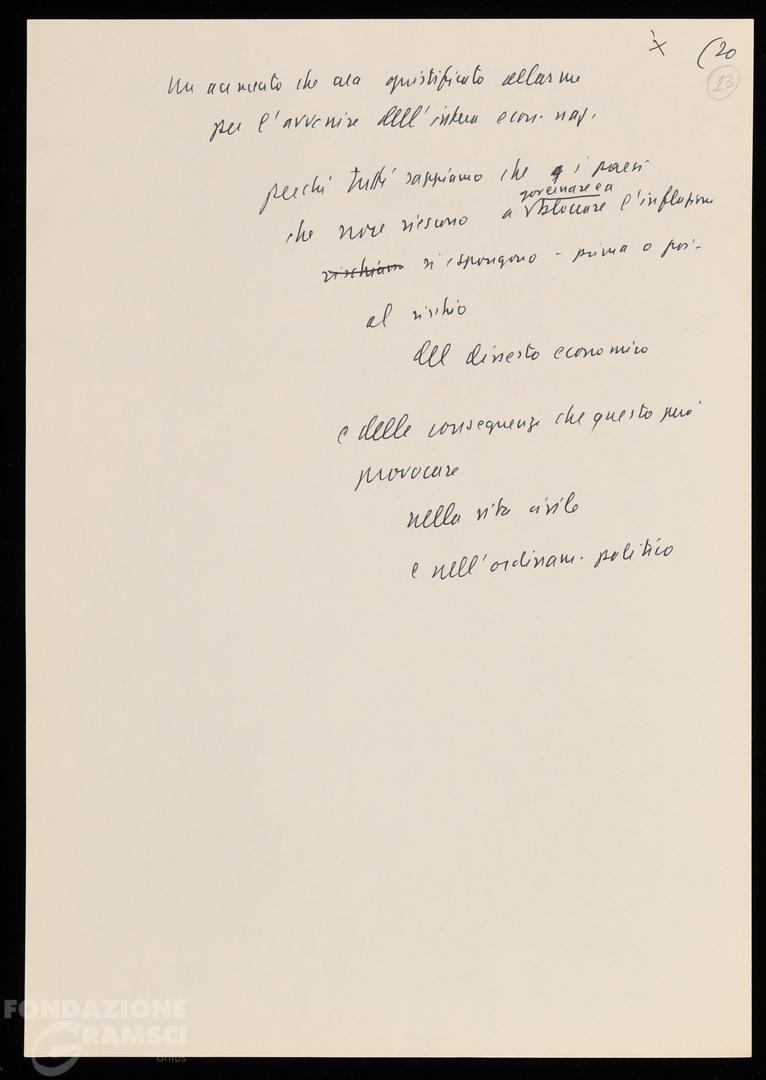 x (20
23
Un aumento che crea giustificato allarme
per l'avvenire dell'intera econ. naz.
perché tutti sappiamo che i paesi
governare e a
che non riescono a bloccare l'inflazione
rischiano si espongono - prima o poi -
al rischio
del dissesto economico
e delle conseguenze che questo può
provocare
nella vita civile
e nell'ordinam. politico
FONDAZIONE
GRAMSCI
onlus